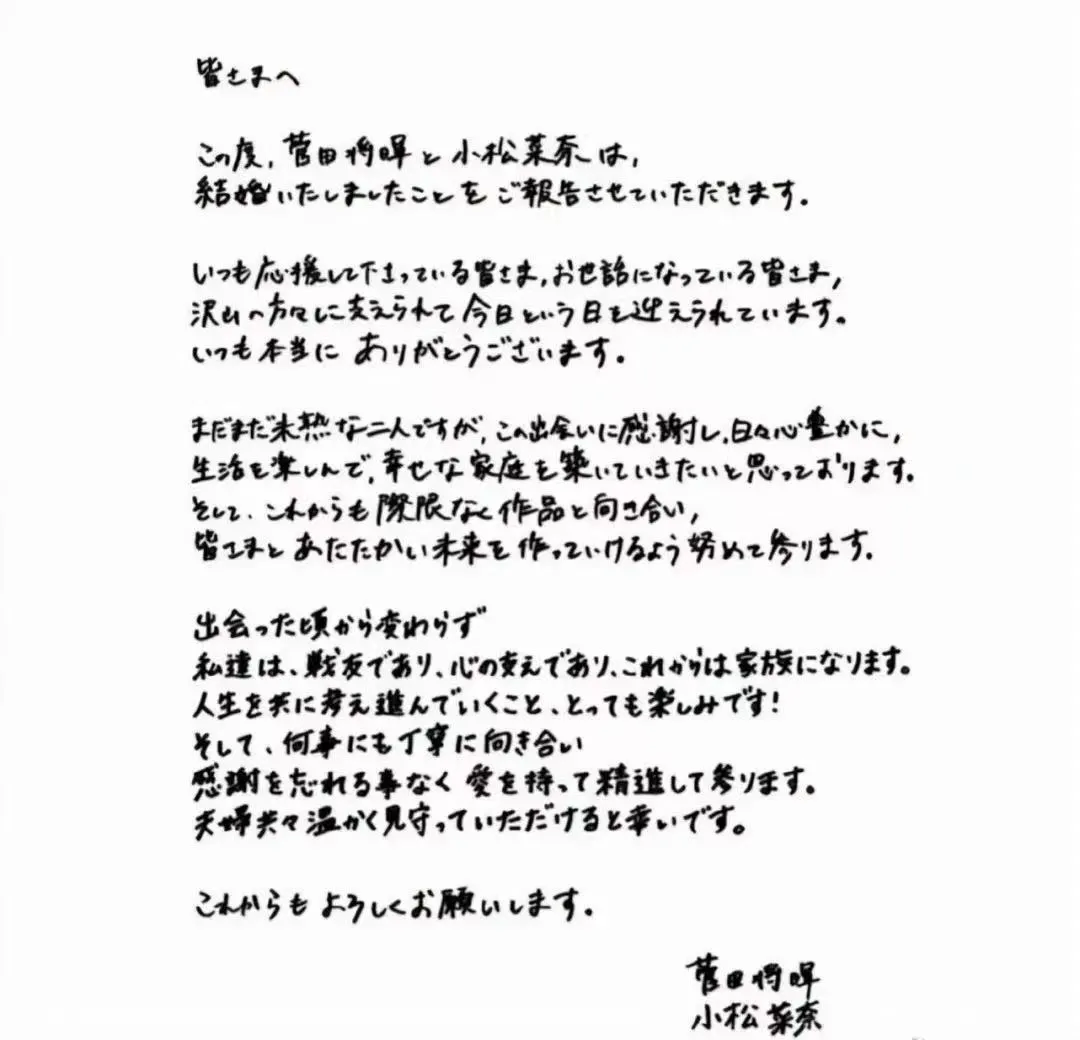 皆さまへ
この度、菅田将暉と小松菜奈は、
結婚いたしましたことをご報告させていただきます。
いつも応援して下さっている皆さま、お世話になっている皆さま、
沢山の方々に支えられて今日という日を迎えられています。
いつも本当に ありがとうございます。
まだまだ未熟な二人ですが、この出会いに感謝し、日々心豊かに、
生活を楽しんで、幸せな家庭を築いていきたいと思っております。
そして、これからも際限なく作品と向き合い、
皆さまと あたたかい未来を作っていけるよう努めて参ります。
出会った頃から変わらず
私達は、戦友であり、心の支えであり、これからは家族になります。
人生を共に考え進んでいくこと、とっても楽しみです!
そして、何事にも丁寧に向き合い
感謝を忘れる事なく 愛を持って精進して参ります。
夫婦共々温かく見守っていただけると幸いです。
これからも よろしくお願いします。
菅田将暉
小松菜奈